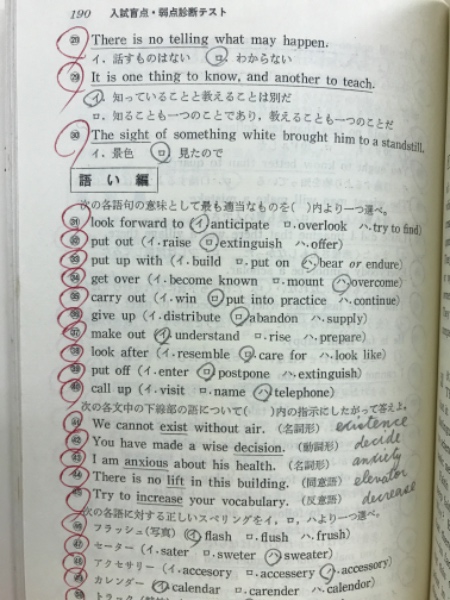 190 入試盲点・弱点診断テスト
㉘ There is no telling what may happen.
イ. 話すものはない ロ. わからない
㉙ It is one thing to know, and another to teach.
イ. 知っていることと教えることは別だ
ロ. 知ることも一つのことであり, 教えることも一つのことだ
㉚ The sight of something white brought him to a standstill.
イ. 景色 ロ. 見たので
語い編
次の各語句の意味として最も適当なものを( )内より一つ選べ。
㉛ look forward to (イ. anticipate ロ. overlook ハ. try to find)
㉜ put out (イ. raise ロ. extinguish ハ. offer)
㉝ put up with (イ. build ロ. put on ハ. bear or endure)
㉞ get over (イ. become known ロ. mount ハ. overcome)
㉟ carry out (イ. win ロ. put into practice ハ. continue)
㊱ give up (イ. distribute ロ. abandon ハ. supply)
㊲ make out (イ. understand ロ. rise ハ. prepare)
㊳ look after (イ. resemble ロ. care for ハ. look like)
㊴ put off (イ. enter ロ. postpone ハ. extinguish)
㊵ call up (イ. visit ロ. name ハ. telephone)
次の各文中の下線部の語について( )内の指示にしたがって答えよ。
㊶ We cannot exist without air. (名詞形) existence
㊷ You have made a wise decision. (動詞形) decide
㊸ I am anxious about his health. (名詞形) anxiety
㊹ There is no lift in this building. (同意語) elevator
㊺ Try to increase your vocabulary. (反意語) decrease
次の各語に対する正しいスペリングをイ, ロ, ハより一つ選べ。
㊻ フラッシュ(写真) (イ. flash ロ. flush ハ. frush)
㊼ セーター (イ. sater ロ. sweter ハ. sweater)
㊽ アクセサリー (イ. accesory ロ. accessery ハ. accessory)
㊾ カレンダー (イ. calendar ロ. carender ハ. calendor)